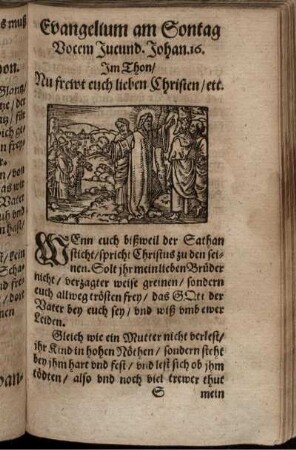 Evangelium am Sontag
Vocem Jucund. Johan. 16.
Im Thon/
Nu frewt euch lieben Christen/ etc.
WEnn euch bißweil der Sathan
sticht/ spricht Christus zu den sei-
nen. Solt jhr mein lieben Brüder
nicht/ verzagter weise greinen/ sondern
euch allweg trösten frey/ das GOtt der
Vater bey euch sey/ vnd wiß vmb ewer
Leiden.
Gleich wie ein Mutter nicht verlest/
jhr Kind in hohen Nöthen/ sondern steht
bey jhm hart vnd fest/ vnd lest sich ob jhm
tödten/ also vnd noch viel trewer thut
S mein